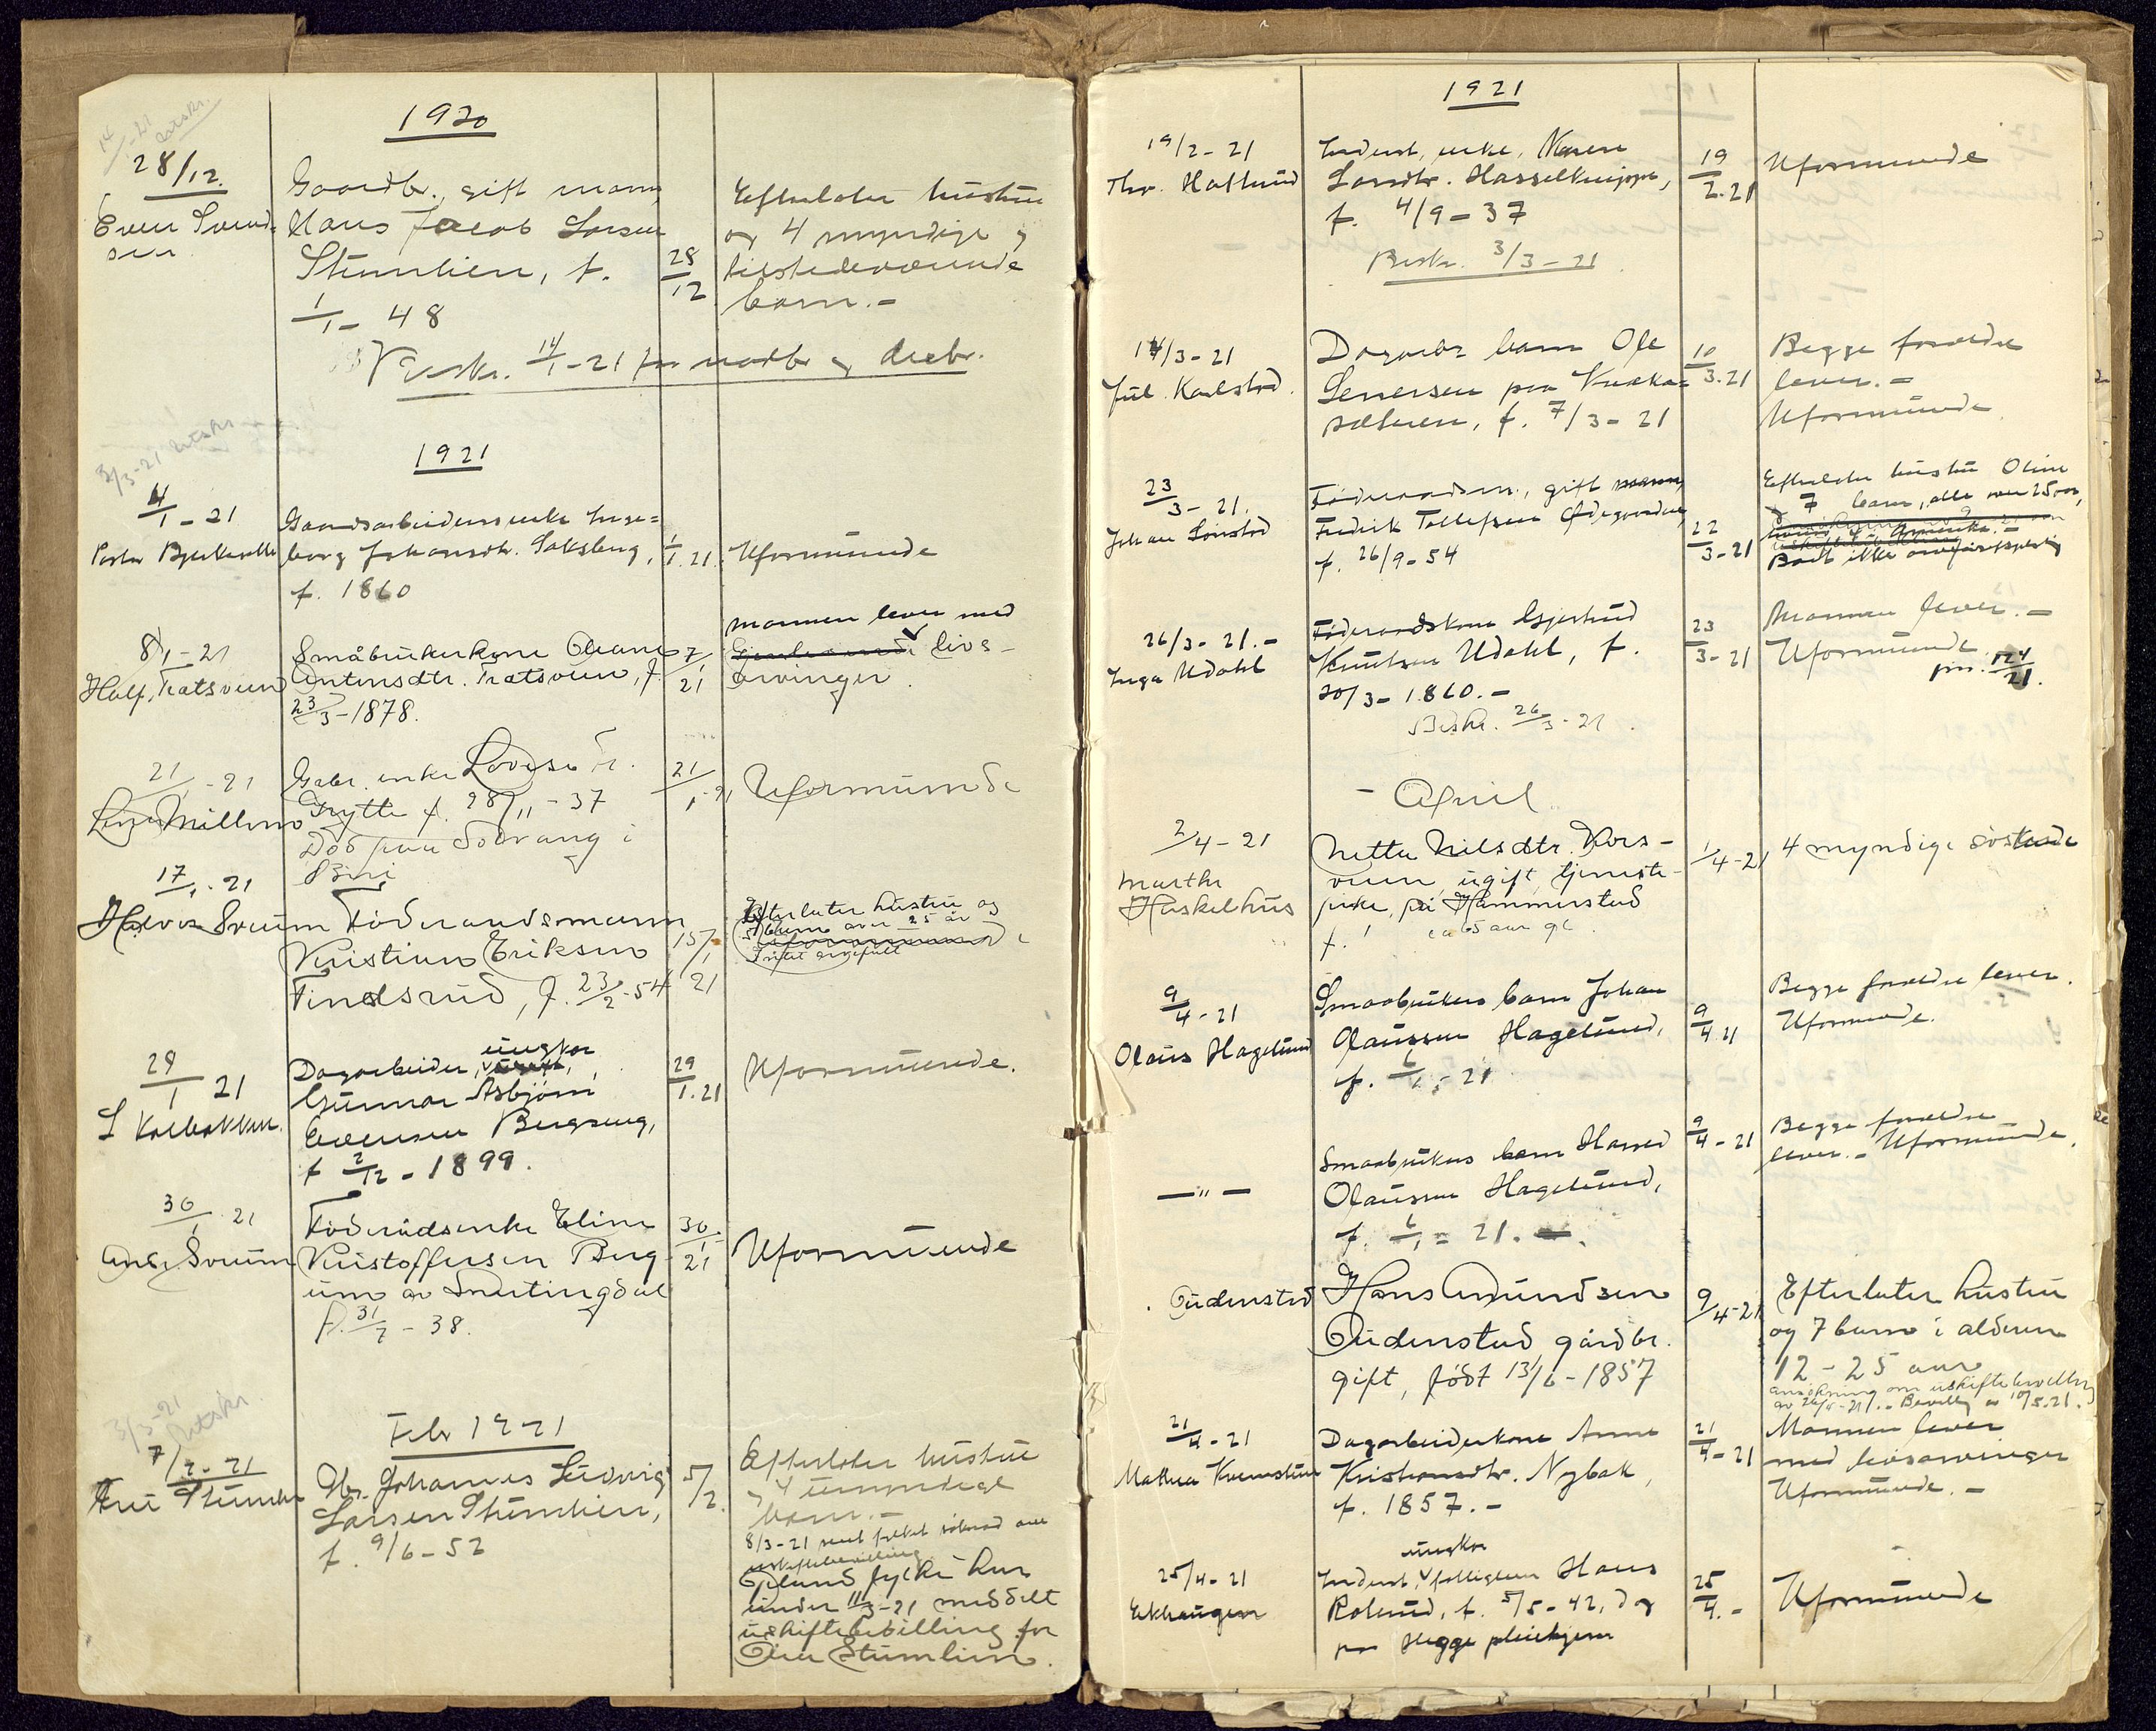 1920
28/12.
Even Svend-
sen
Gaardbr., gift mann,
Hans Jacob Larsen
Stumlien, f.
1/1 - 48
28/12
Efterlater hustru
og 4 myndige og
tilstedeværende
barn. -
14/1-21 for nordbr og
1921
4/1 - 21
Gaardsarbeidersenke Inge=
borg Johansdtr. Saksberg,
f. 1860
1/1.21.
Uformuende
8/1 - 21
Half. Tratsveen
Småbrukerkone Oleane
Antonsdtr. Tratsveen, f.
23/3 - 1878.
7/1 21
mannen lever med
livs-
arvinger.
21/1 - 21
Gbr. enke Lovise
Grytte f. 28/11 - 37
Død paa Solvang i
21/1-21
Uformuende
17/1 - 21
Halvor Sveum
Föderaadsmann
Kristian Eriksen
Findsrud, f. 23/2-54
15/1 21
Efterlater hustru og
barn over 25 år
29/1 21
L Kolbakken.
Dagarbeider, ungkar
Gunnar Asbjørn
Evensen Bergseng,
f 2/12 - 1899.
29/1.21
Uformuende.
30/1 21
And. Sveum
Föderådsenke Eline
Kristoffersen Berg-
um av Snertingdal
f. 31/7 - 38.
30/1 21
Uformuende
3/3-21
Feb 1921
7/2 - 21
Gbr. Johannes Ludvig
Larsen Stumlien,
f. 9/6 - 52
5/2.
Efterlater hustru
og 4 umyndige
barn. -
8/3-21 sendt søknad om
uskiftebevilling
Opland fylke har
under 11/3-21 meddelt
uskiftebevilling for
Stumlien.
1921
19/2 - 21
Thv. Haflund
Inderst, enke, Karen
Larsdtr. Hasselknippe,
f. 4/9 - 37
Beskr. 3/3 - 21
19/2.21
Uformuende
14/3 - 21
Jul. Karlstad.
Dagarb. barn Ole
Senersen paa
sæteren, f. 7/3 - 21
10/3.21
Begge forældre
lever. -
Uformuende
23/3 - 21.
Johan Lønstad
Föderaadsm., gift mann,
Fredrik Tollefsen Ødegaarden,
f. 26/9 - 54
22/3 - 21
Efterlater hustru Oline
og 7 barn, alle over 25 aar,
Boet ikke
26/3 - 21. -
Inga Udahl
Föderaadskone Gjertrud
Knutsen Udahl, f.
20/3 - 1860. -
Beskr. 26/3 - 21.
23/3 - 21
Mannen lever. -
Uformuende
- April
2/4 - 21
Marthe
Haskelhus
Nette Nilsdtr. Kors-
veen, ugift tjeneste-
pike, på Hammerstad
f. ca 65 aar gl.
1/4 - 21
4 myndige söskende
9/4 - 21
Olaus Hagelund
Smaabrukers barn Johan
Olaussen Hagelund,
f. 6/1 - 21
9/4 21
Begge forældre lever.
Uformuende.
— " —
Smaabrukers barn
Olaussen Hagelund,
f. 6/1 = 21.
9/4 - 21
Begge forældre
lever. - Uformuende.
Oudenstad
Hans Amundsen
Oudenstad gårdbr.
gift, født 13/6 - 1857
9/4-21
Efterlater hustru
og 7 barn i alderen
12 - 25 aar
ansökning om uskiftebevilling
av 26/4-21. - Bevilling av 10/5.21.
21/4 - 21
Mathea Kvernstuen
Dagarbeiderkone Anne
Kristiansdtr. Nybak,
f. 1857. -
21/4 - 21
Mannen lever
med livsarvinger
Uformuende. -
25/4 - 21
Inderst, ungkar fattiglem Hans
Rolerud, f. 5/5 - 42, d og
paa Hegge pleiehjem
25/4. -
Uformuende